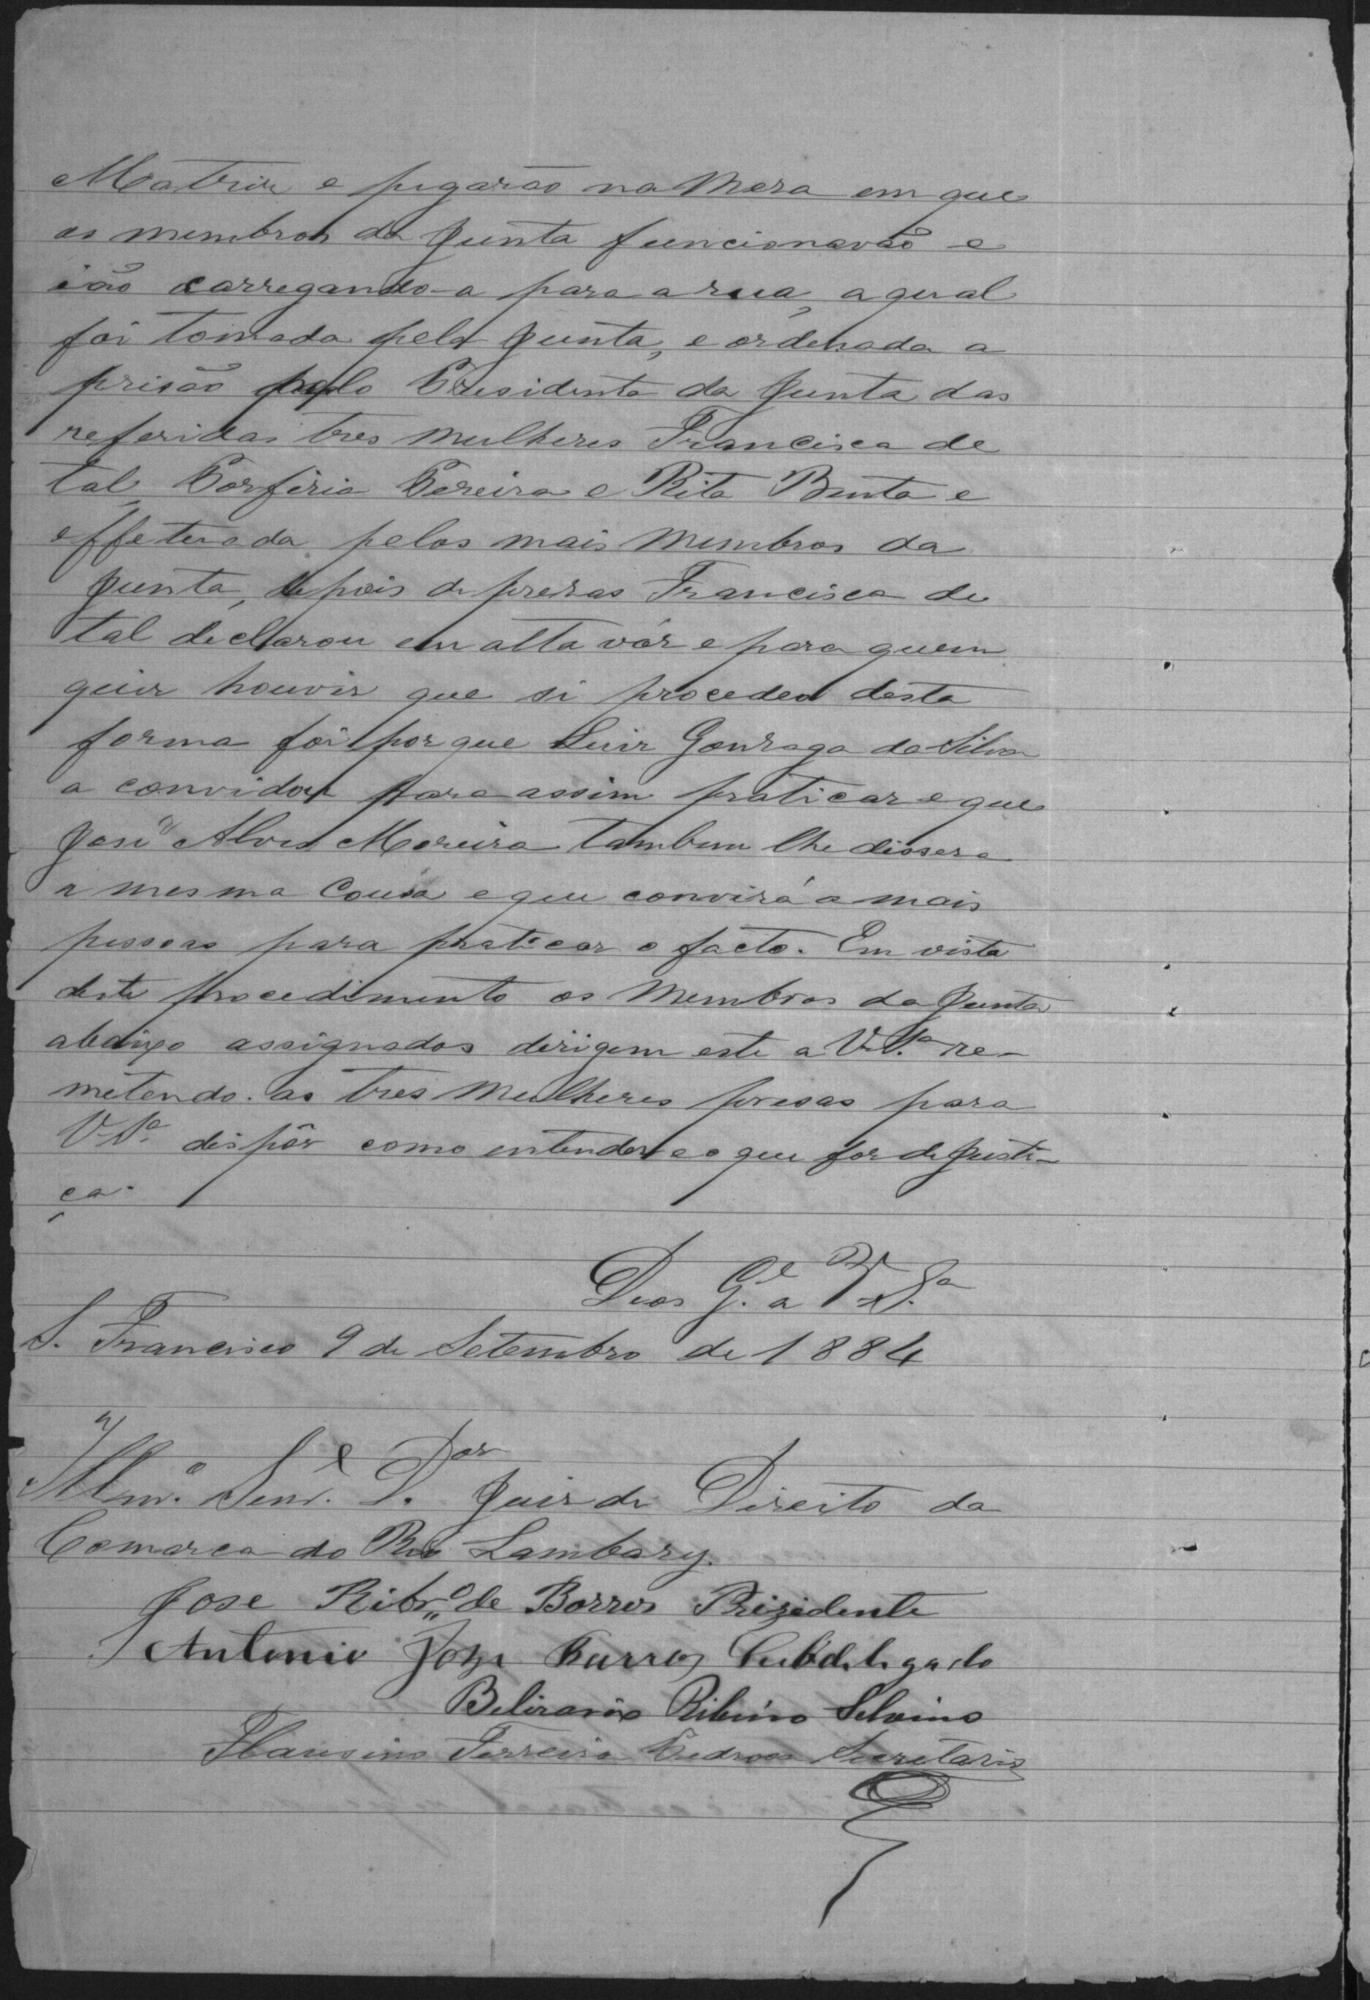 Matriz e pegarão na Mesa em que
os membros da Junta funccionavão e
ião carregando-a para a rua, a qual
foi tomada pela Junta, e ordenada a
prisão pelo Presidente da Junta das
referidas tres mulheres Francisca de
tal, Porfiria Pereira e Rita Benta e
effetuada pelos mais Membros da
Junta, depois de prezas Francisca de
tal declarou em alta vóz e para quem
quiz houvir que si procedeo desta
forma foi por que Luiz Gonzaga da Silva
a convidou para assim praticar e que
José Alves Moreira tambem lhe dissera
a mesma Cousa e que convirá a mais
pessoas para praticar o facto. Em vista
deste procedimento os Membros da Junta
abaixo assignados dirigem este a V. S.ª re-
metendo as tres Mulheres presas para
V. S.ª dispôr como entender e o que for de Justi-
ça.
Deos G.e a V. S.ª
S. Francisco 9 de Setembro de 1884
Illm.º Senr. D.or Juiz de Direito da
Comarca do Rio Lambary.
Jose Ribr.º de Barros Prezidente
Antonio Joze Barros Subdelegado
Belizario Ribeiro Selvino
Flausino Ferreira Pedroza Secretario